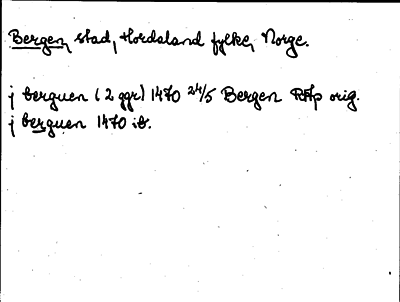 Bergen, stad, Hordaland fylke, Norge.
j berguen (2 ggr) 1470 24/5 Bergen RAp orig.
j berguen 1470 ib.